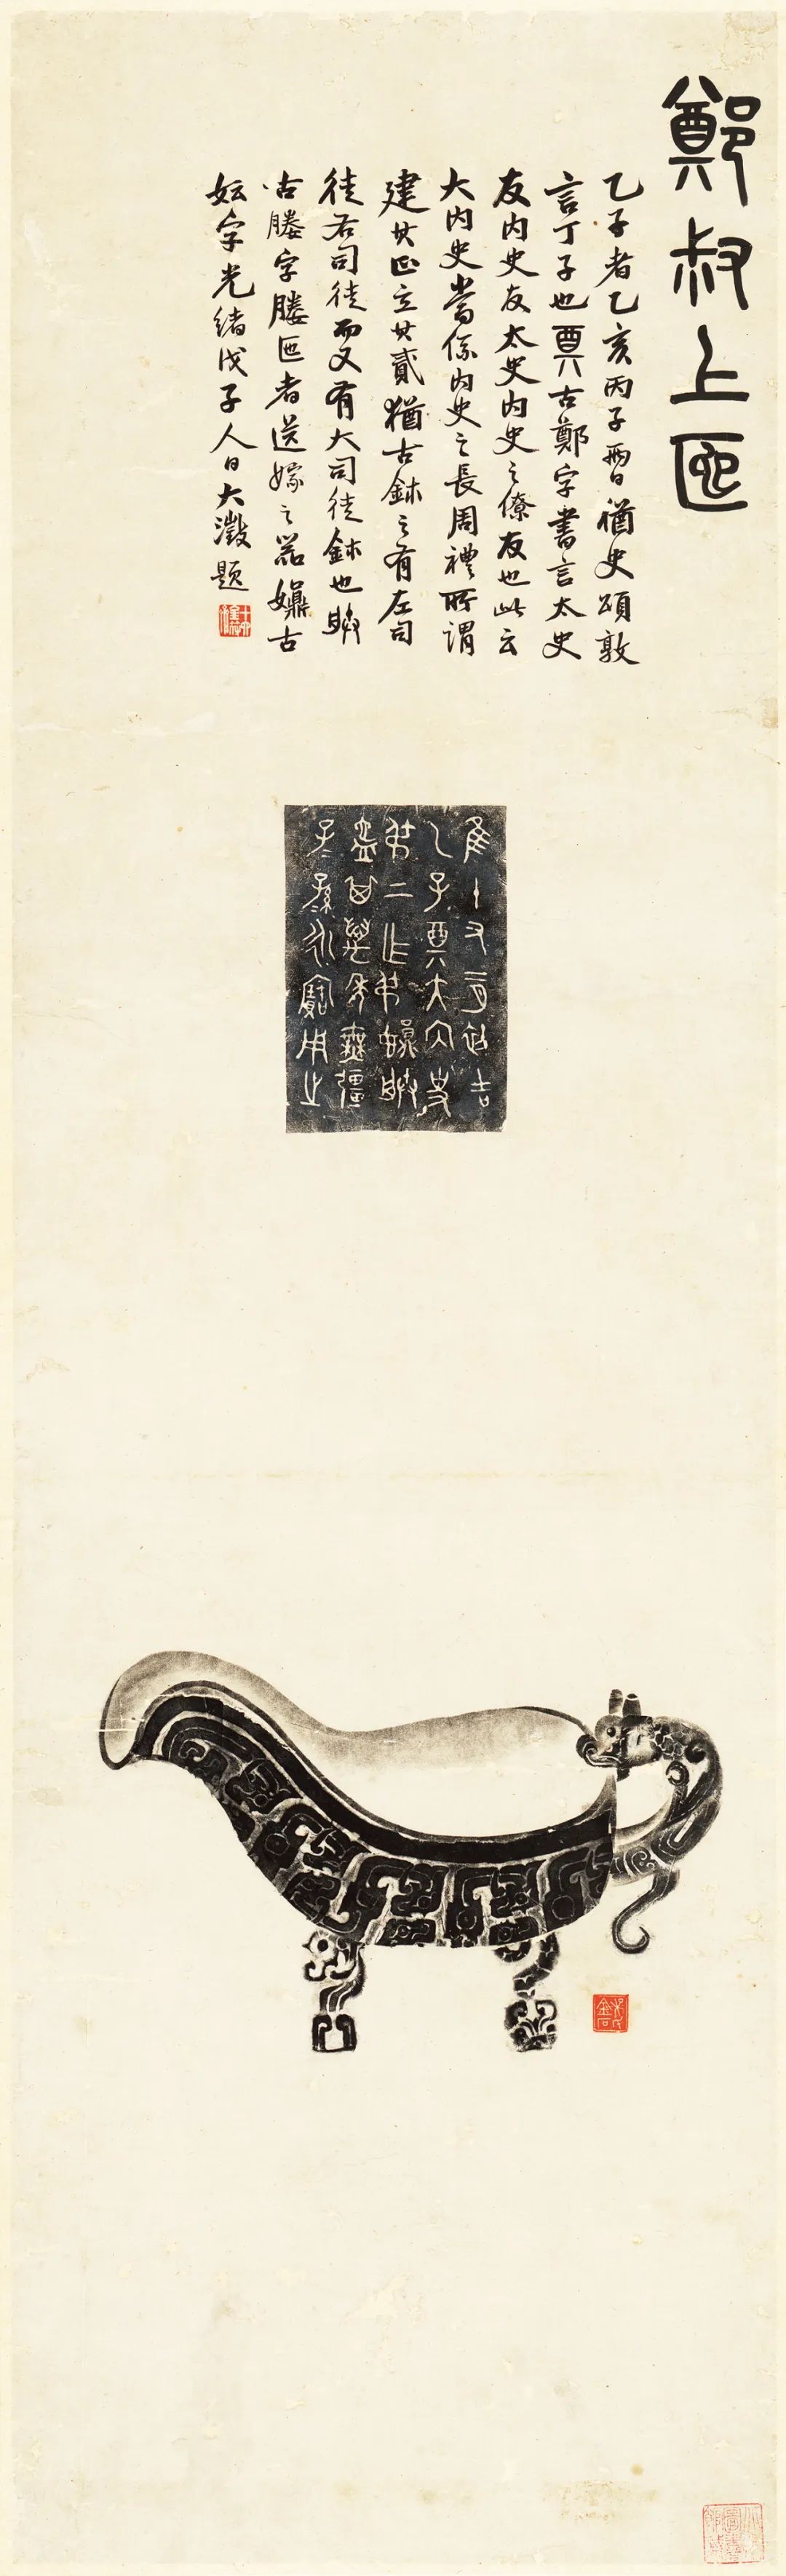 鄭叔上匜
乙子者乙亥丙子兩日猶史頌敦
言丁子也奠古鄭字書言太史
友内史友太史内史之僚友也此云
大内史當係内史之長周禮所謂
建其正立其貳猶古鉨之有左司
徒右司徒而又有大司徒鉨也䞋
古媵字媵匜者送嫁之器㜏古
妘字光緒戊子人日大澂題
隹十又二月初吉
乙子奠大内史
弔上乍弔㜏䞋
匜其萬年無疆
子孫永寶用之